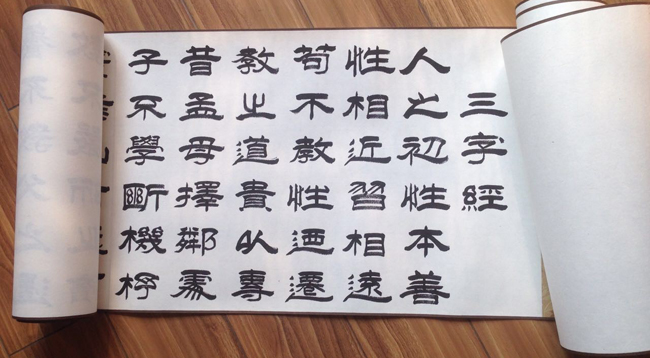 三字經
人之初性本善
性相近習相遠
苟不教性迺遷
教之道貴以專
昔孟母擇鄰處
子不學斷機杼